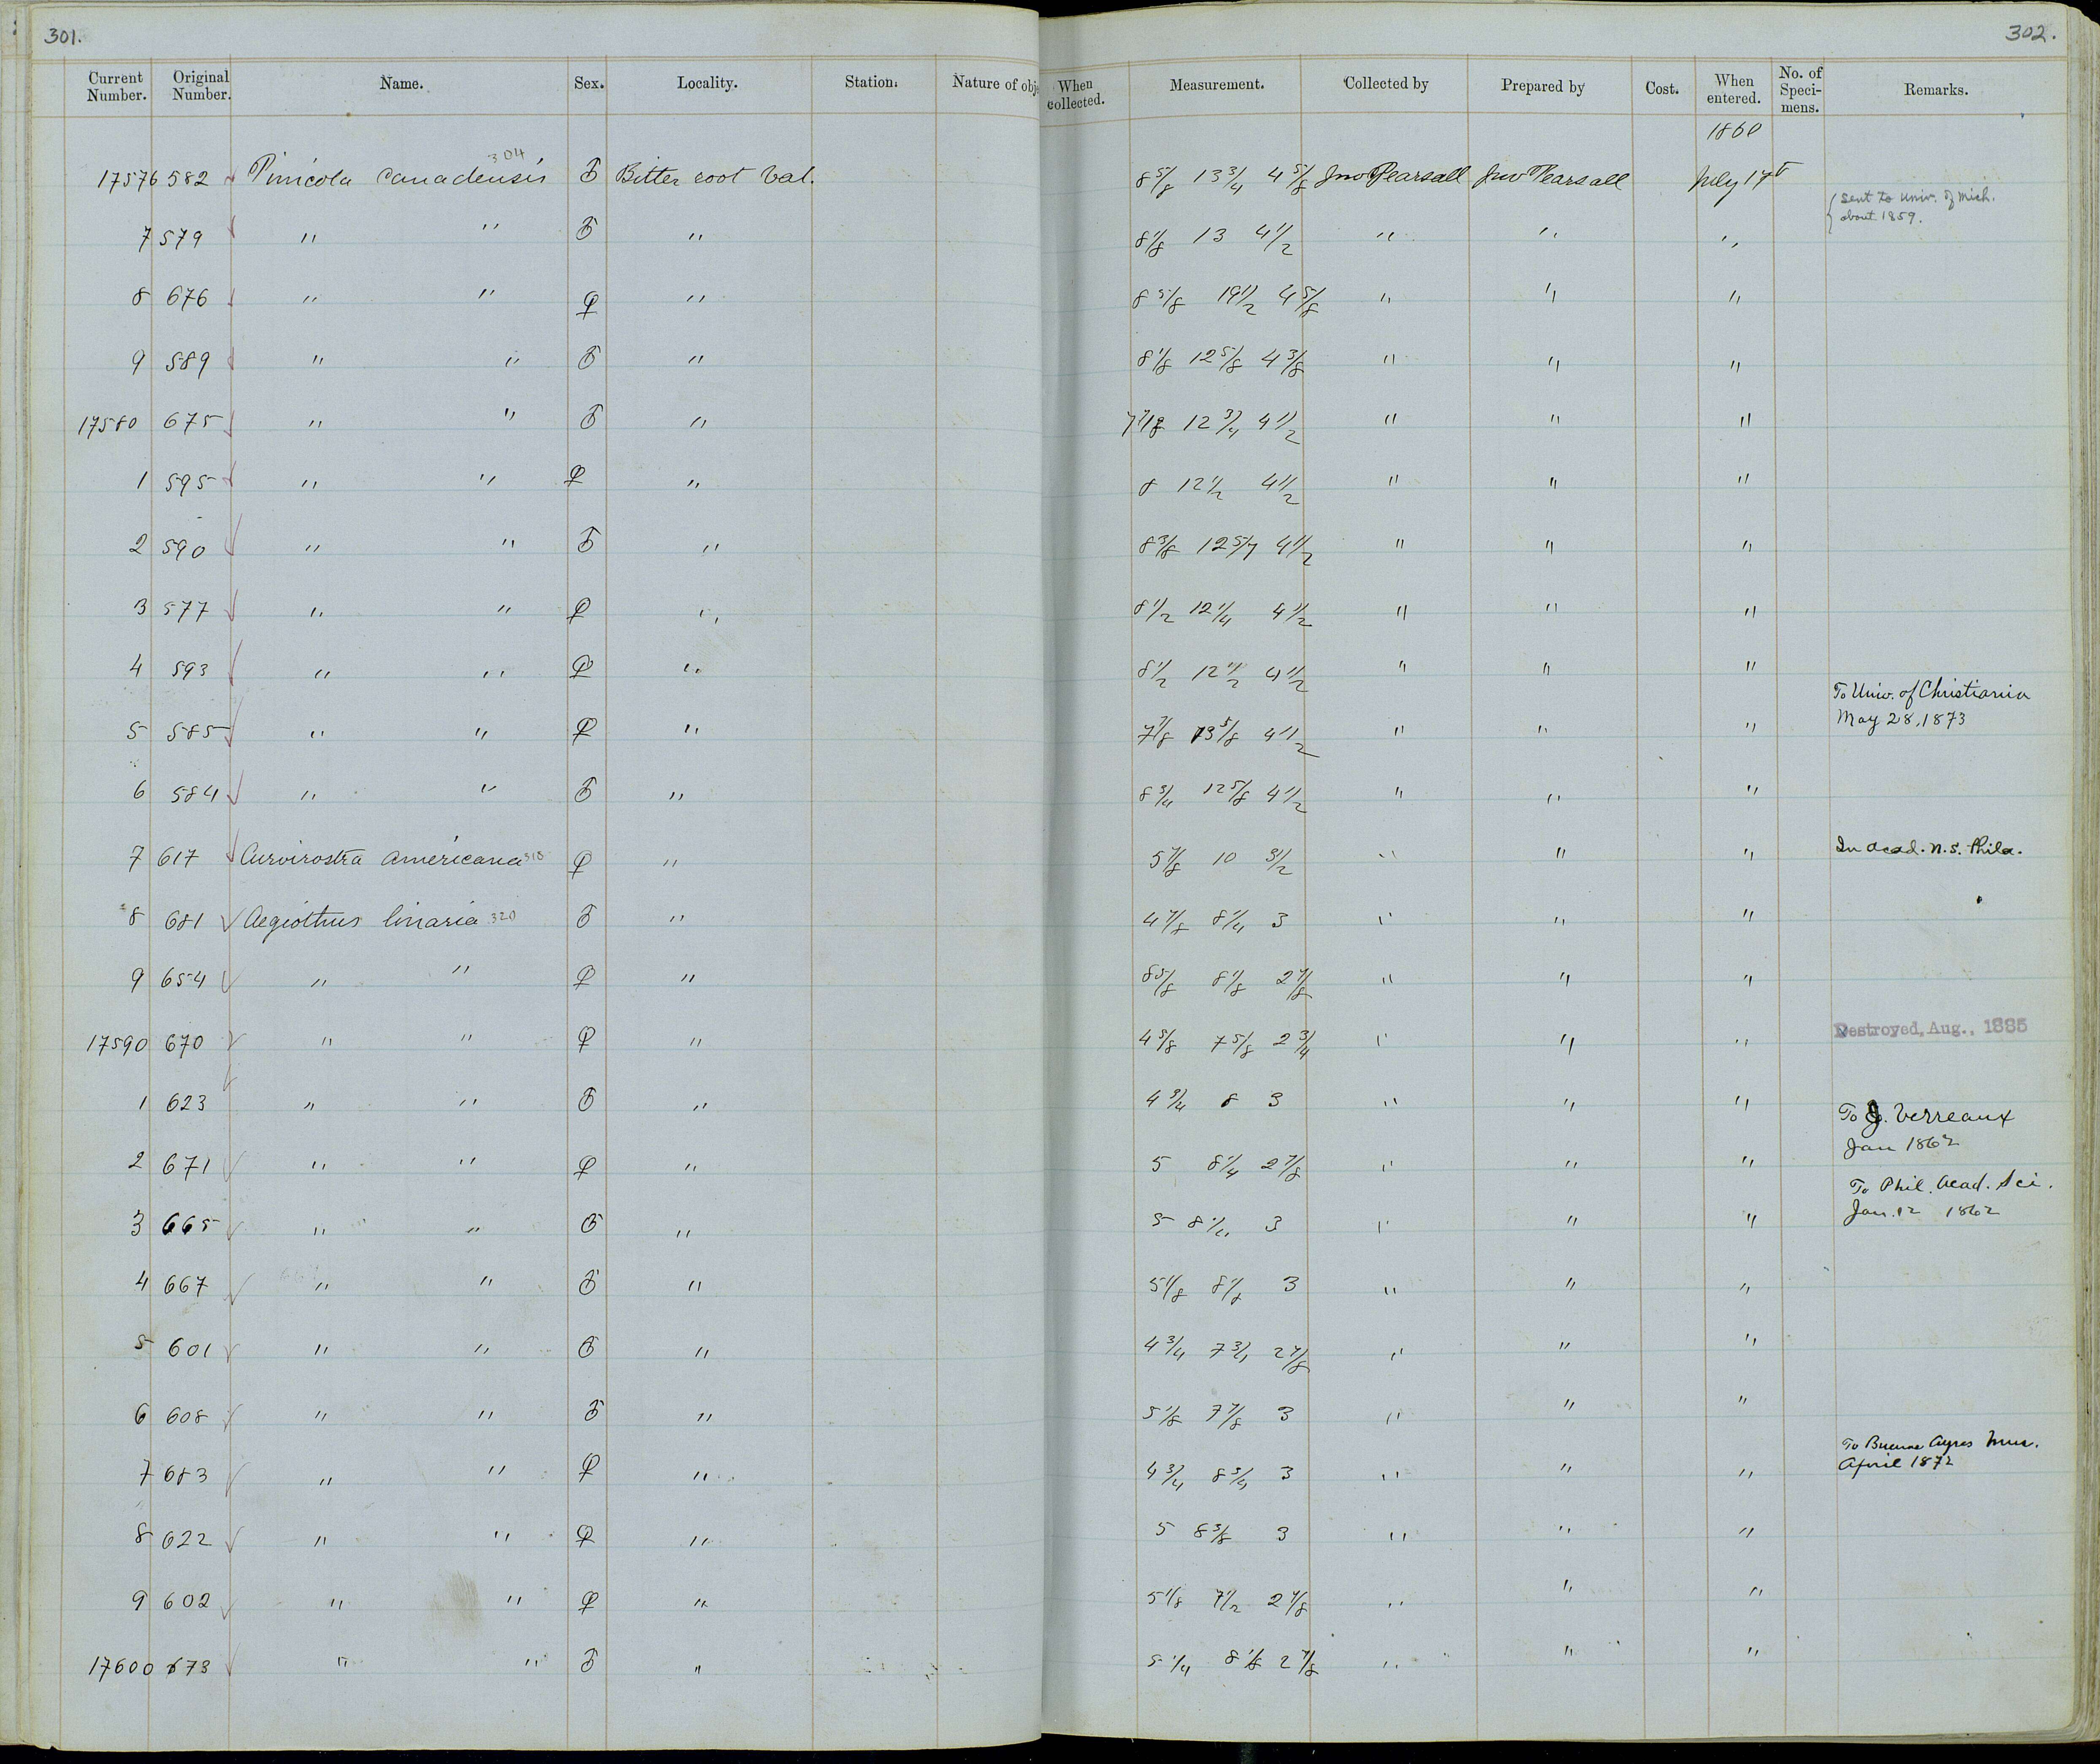 301.
302.
Current Number. Original Number. Name. Sex. Locality. Station. Nature of obje When collected. Measurement. Collected by Prepared by Cost. When entered. No. of Speci-mens. Remarks.
1860
304
17576 582 Pinicola canadensis ♂ Bitter root Val. 8 5/8 13 3/4 4 5/8 Jno Pearsall Jno Pearsall July 17t
Sent to Univ. of Mich.
about 1859.
7 579 " " ♂ " 8 1/8 13 4 1/2 " " "
8 676 " " ♀ " 8 5/8 19 1/2 4 5/8 " " "
9 589 " " ♂ " 8 1/8 12 5/8 4 3/8 " " "
17580 675 " " ♂ " 7 7/8 12 3/4 4 1/2 " " "
1 595 " " ♀ " 8 12 1/2 4 1/2 " " "
2 590 " " ♂ " 8 3/8 12 5/7 4 1/2 " " "
3 577 " " ♀ " 8 1/2 12 1/4 4 1/2 " " "
4 593 " " ♀ " 8 1/2 12 1/2 4 1/2 " " "
To Univ. of Christiania
May 28, 1873
5 585 " " ♀ " 7 7/8 13 5/8 4 1/2 " " "
6 584 " " ♂ " 8 3/4 12 5/8 4 1/2 " " "
7 617 Curvirostra americana 318 ♀ " 5 7/8 10 3 1/2 " " " In Acad. N.S. Phila.
8 681 Aegiothus linaria 320 ♂ " 4 7/8 8 1/4 3 " " "
9 654 " " ♀ " 8 5/8 8 1/8 2 7/8 " " "
17590 670 " " ♀ " 4 5/8 7 5/8 2 3/4 " " " Destroyed, Aug., 1885
1 623 " " ♂ " 4 3/4 8 3 " " "
To J. Verreaux
Jan 1862
2 671 " " ♀ " 5 8 1/4 2 7/8 " " "
To Phil. Acad. Sci.
Jan. 12 1862
3 665 " " ♂ " 5 8 1/4 3 " " "
4 667 " " ♂ " 5 1/8 8 1/8 3 " " "
5 601 " " ♂ " 4 3/4 7 3/4 2 7/8 " " "
6 608 " " ♂ " 5 1/8 7 7/8 3 " " "
To Buenos Ayres Mus.
April 1872
7 683 " " ♀ " 4 3/4 8 3/4 3 " " "
8 622 " " ♀ " 5 8 3/8 3 " " "
9 602 " " ♀ " 5 1/8 7 1/2 2 7/8 " " "
17600 673 " " ♂ " 5 1/4 8 1/8 2 7/8 " " "